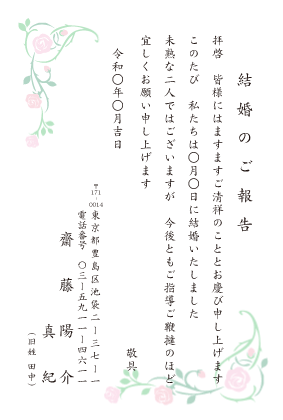 結婚のご報告
拝啓　皆様にはますますご清祥のこととお慶び申し上げます
このたび　私たちは〇月〇日に結婚いたしました
未熟な二人ではございますが　今後ともご指導ご鞭撻のほど
宜しくお願い申し上げます
敬具
令和〇年〇月吉日
〒171-0014
東京都豊島区池袋二ー三七ー一
電話番号　〇三ー五九一一ー四六一一
齋藤　陽介
真紀
（旧姓 田中）